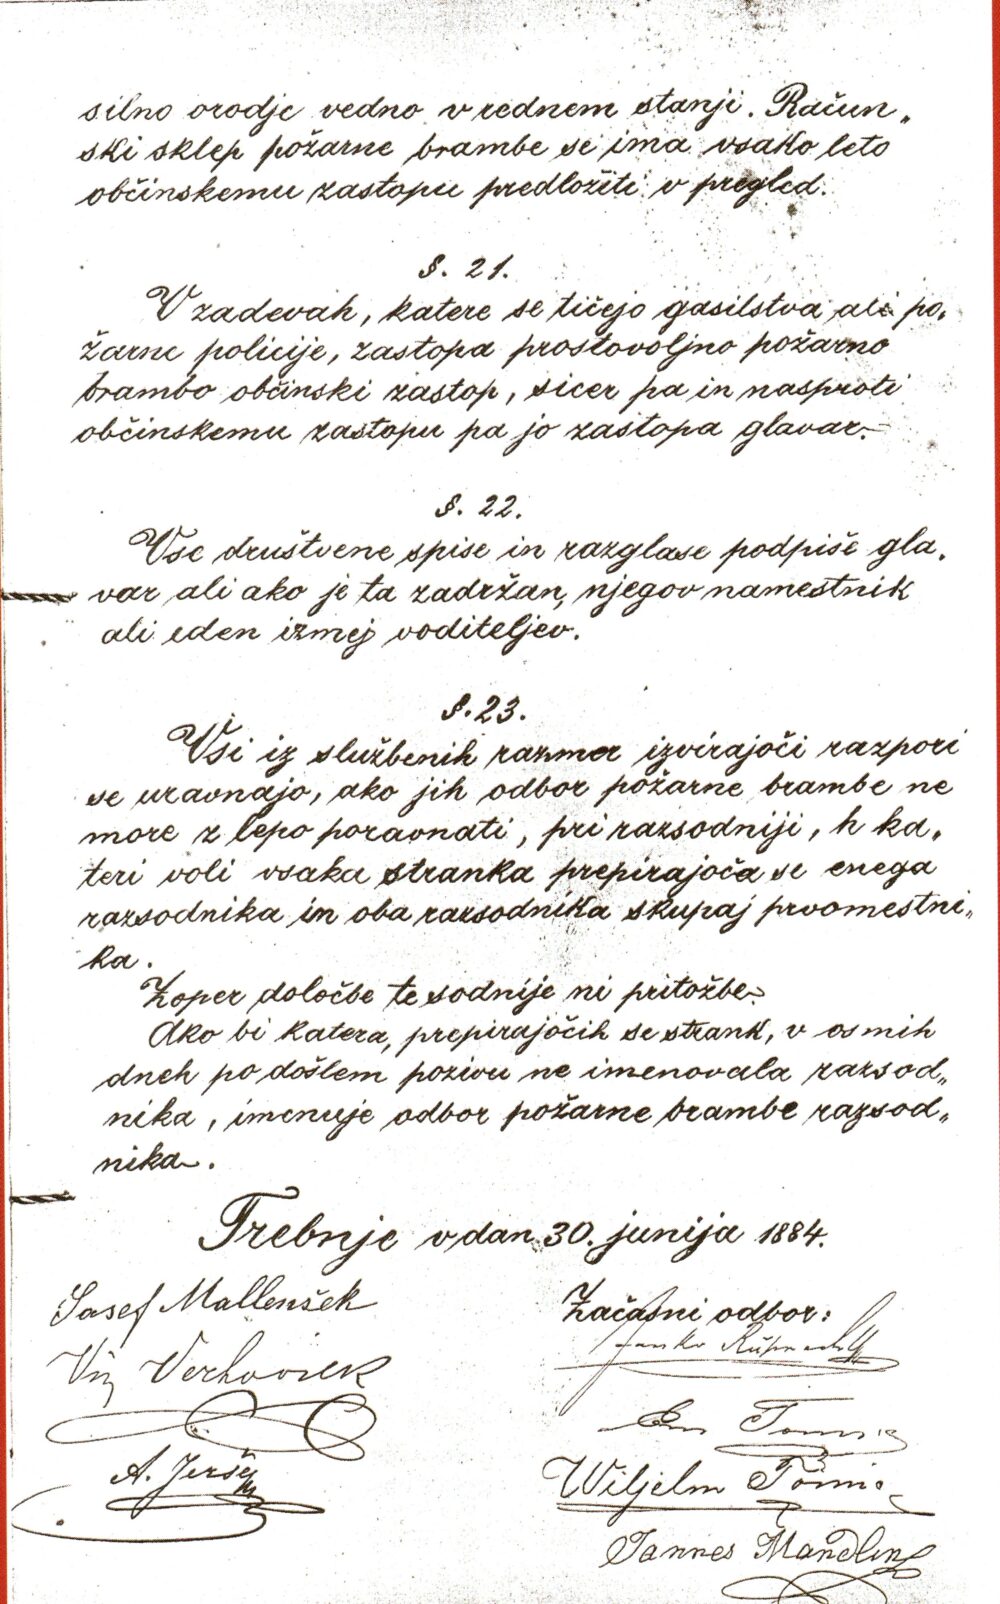 silno orodje vedno v rednem stanji. Račun„
ski sklep požarne brambe se ima vsako leto
občinskemu zastopu predložiti v pregled.
§. 21.
V zadevah, katere se tičejo gasilstva ali po„
žarne policije, zastopa prostovoljno požarno
brambo občinski zastop, sicer pa in nasproti
občinskemu zastopu pa jo zastopa glavar.
§. 22.
Vse društvene spise in razglase podpiše gla„
var ali ako je ta zadržan, njegov namestnik
ali eden izmej voditeljev.
§. 23.
Vsi iz službenih razmer izvirajoči razpori
se uravnajo, ako jih odbor požarne brambe ne
more z lepo poravnati, pri razsodniji, h ka„
teri voli vsaka stranka prepirajoča se enega
razsodnika in oba razsodnika skupaj prvomestni„
ka.
Zoper določbe te sodnije ni pritožbe.
Ako bi katera, prepirajočih se strank, v osmih
dneh po došlem pozivu ne imenovala razsod„
nika, imenuje odbor požarne brambe razsod„
nika.
Trebnje v dan 30. junija 1884.
Josef Mallenšek
Začasni odbor:
Janko
A. Jeršek
Wiljelm Tomic
Jannes